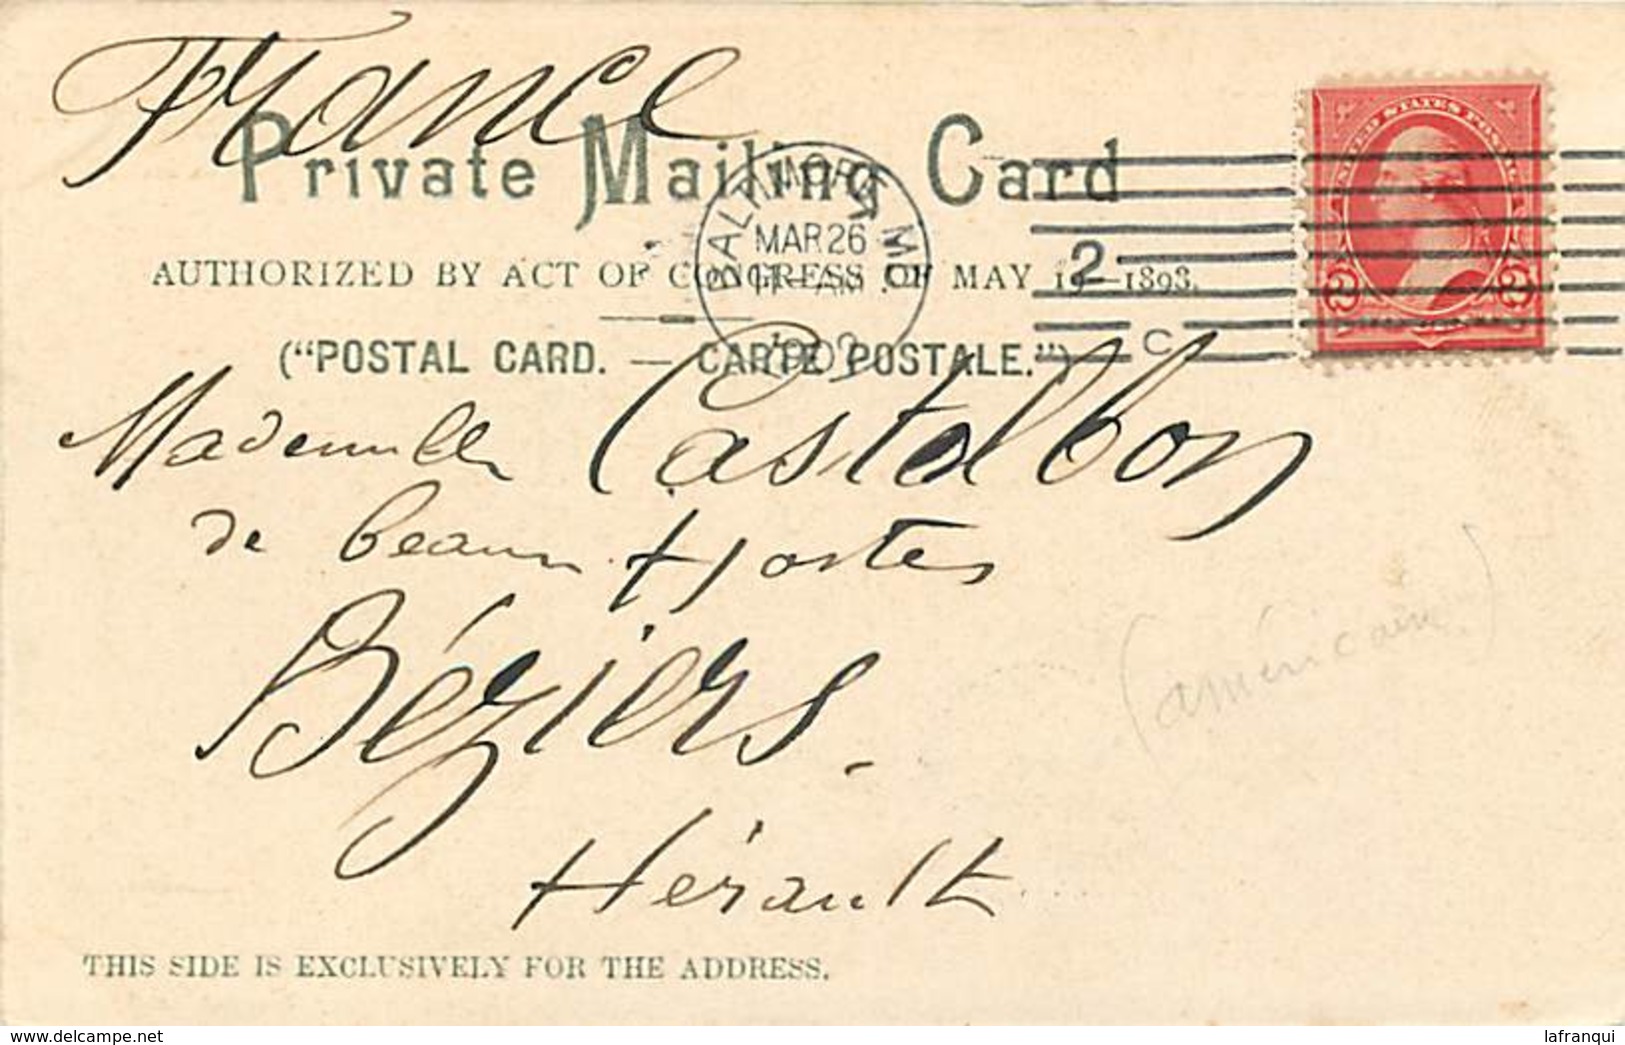 France
Private Mailing Card
BALTIMORE, MD.
MAR 26
11-AM
190
2
C
UNITED STATES POSTAGE
2 2
AUTHORIZED BY ACT OF CONGRESS OF MAY 19-1898.
("POSTAL CARD. — CARTE POSTALE.")
Mademoiselle Castelbon
de beaux Hostes
Béziers.
(américaine)
Hérault
THIS SIDE IS EXCLUSIVELY FOR THE ADDRESS.
delcampe.net
lafranqui